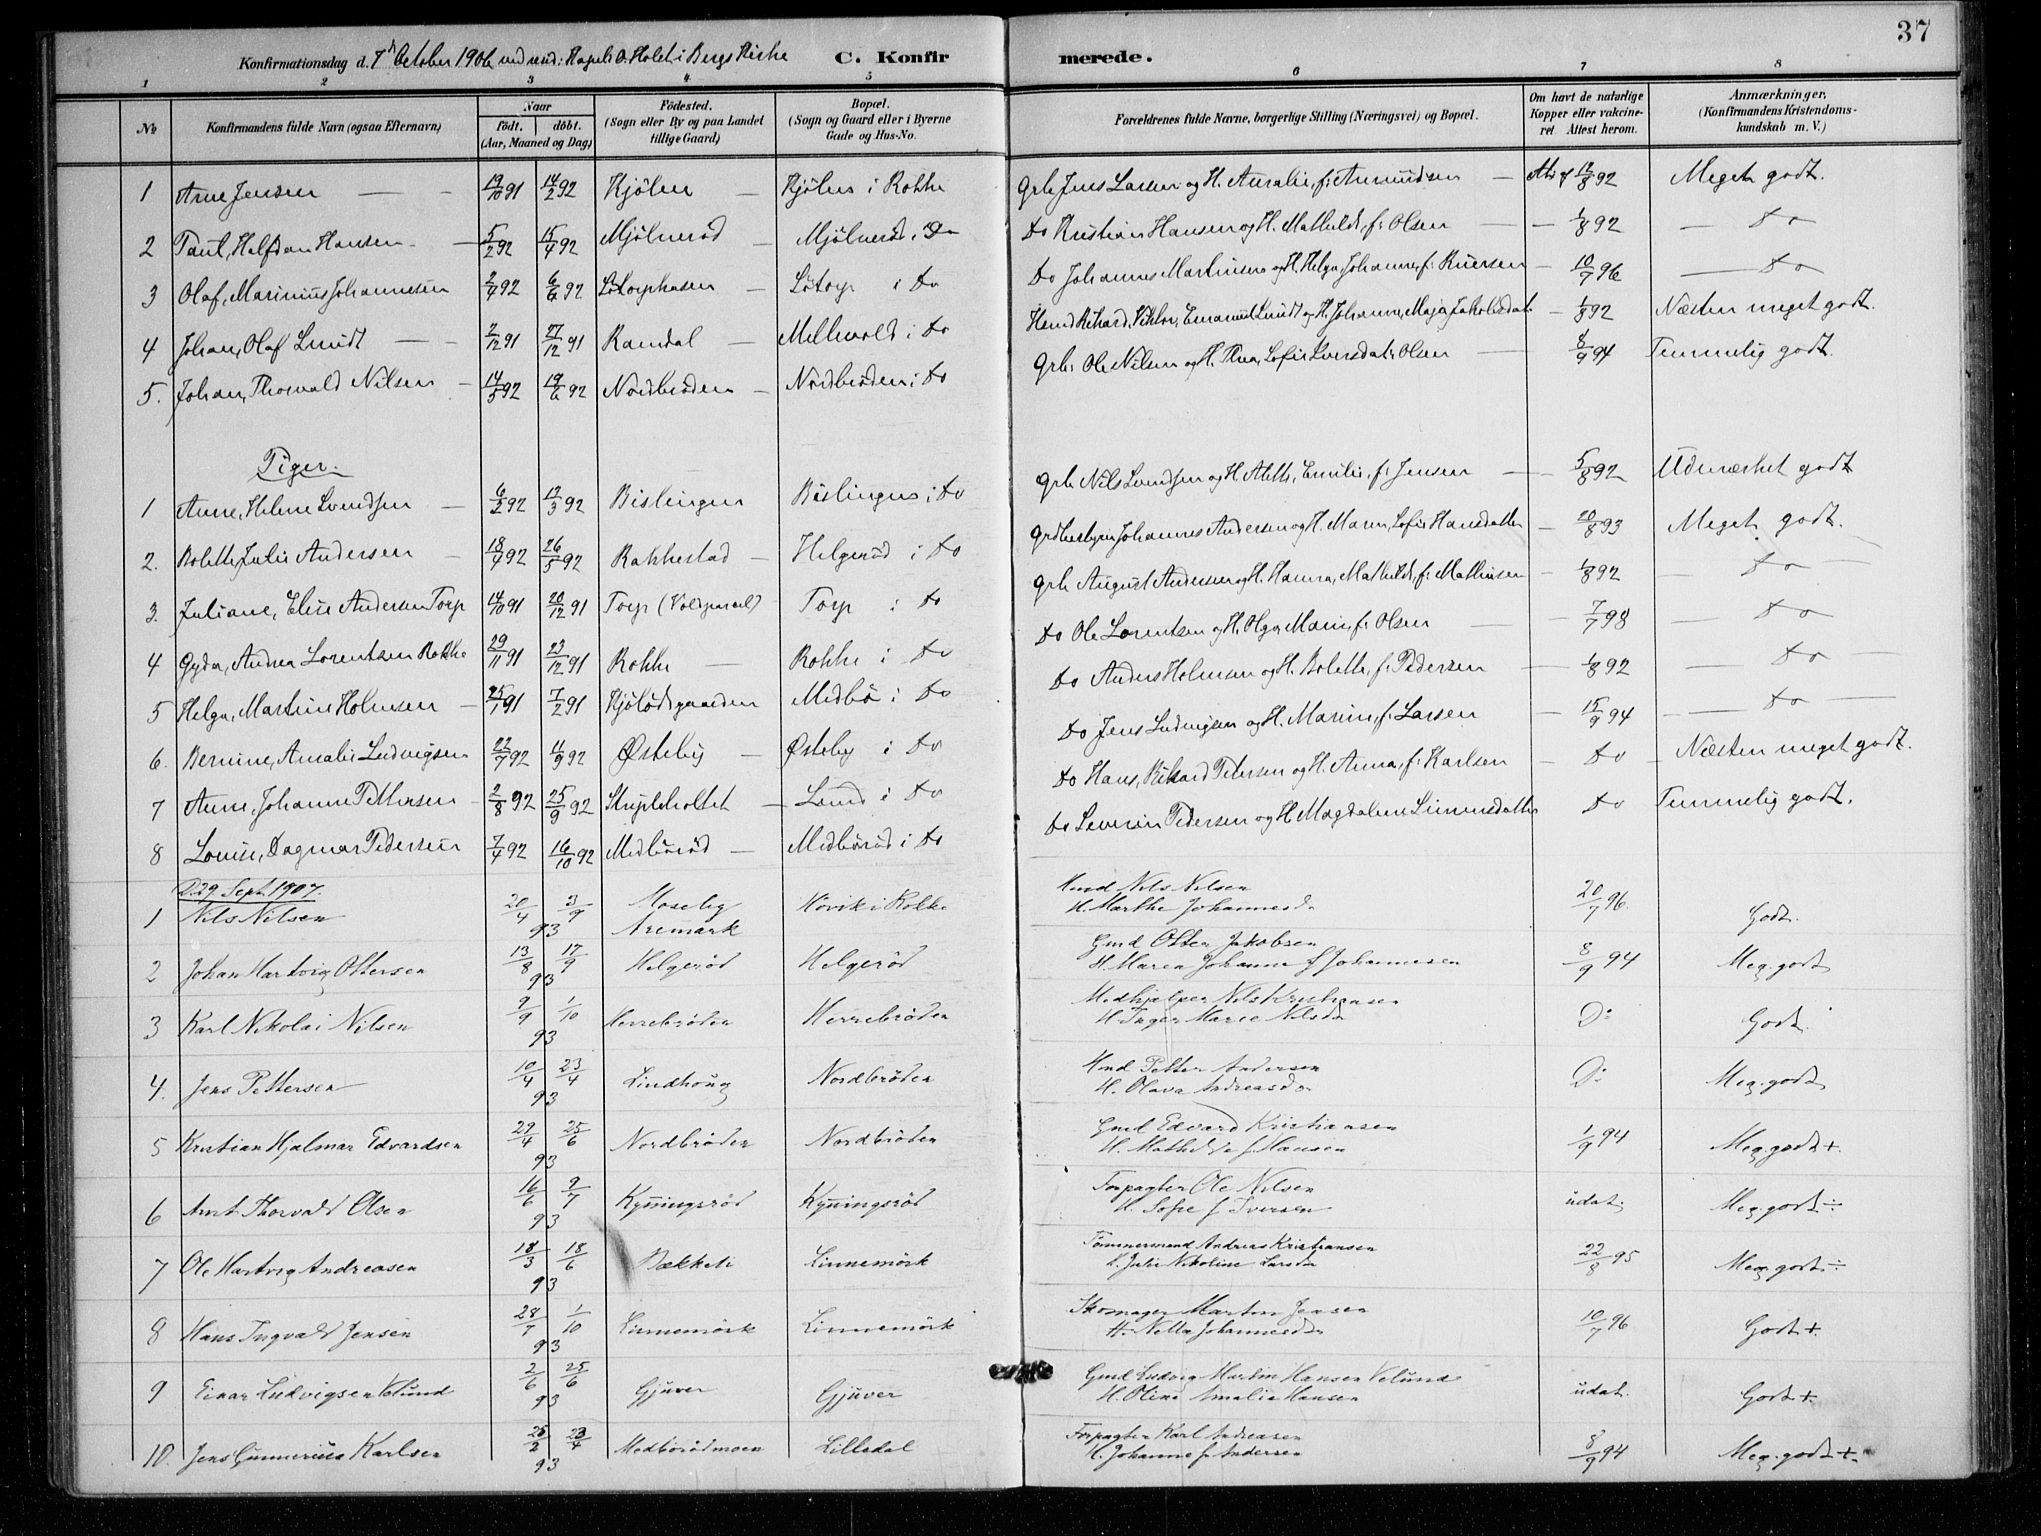 37
Konfirmationsdag d. 7de October 1906 ved resid: Kapel: O. Holst i Bergs Kirke C. Konfirmerede.
1 2 3 4 5 6 7 8
No Konfirmandens fulde Navn (ogsaa Efternavn) Naar født. døbt. (Aar, Maaned og Dag) Fødested. (Sogn eller By og paa Landet tillige Gaard) Bopæl. (Sogn og Gaard eller i Byerne Gade og Hus-No. Forældrenes fulde Navne, borgerlige Stilling (Næringsvei) og Bopæl. Om havt de naturlige Kopper eller vakcineret Attest herom. Anmærkninger. (Konfirmandens Kristendomskundskab m. V.)
1 Arne Jensen 19/10 91 14/2 92 Kjølen Kjølen i Rokke Grbr Jens Larsen og H. Amalie, f: Amundsen 12/8 92 Meget godt.
2 Paul, Halfdan Hansen 5/2 92 15/4 92 Mjølnerød Mjølnerød i Do Do Kristian Hansen og H. Mathilde, f: Olsen 1/8 92 Do
3 Olaf, Marinius Johannesen 2/4 92 6/6 92 Løtorp i Do Do Johannes Martinsen og H. Helga Johanne, f: 10/7 96 Do
4 Johan, Olaf Lundt 2/12 91 27/12 91 Ramdal i Do Hmd Rikard, Viktor, Emanuel Lundt og H. Johanne, Maja Jakobsdat 1/8 92 Næsten meget godt.
5. Johan, Thorvald Nilsen 14/5 92 19/6 92 Nordbrøden Nordbrøden i Do Grbr Ole Nilsen og H. Thea, Sofie Iversdat: Olsen 8/9 94 Temmelig godt.
Piger.
1 Anne, Helene Svendsen 6/2 92 13/3 92 Bislingen Bislingen i Do Grbr Nils Svendsen og H. Mette, Emilie, f: Jensen 5/8 92 Udmærket godt
2. Bolette, Julie Andersen 18/4 92 26/5 92 Rakkestad Helgerød i Do Grdbestyrer Johannes Andersen og H. Maren, Sofie Hansdatter 20/8 93 Meget godt.
3. Juliane, Elise Andersen Torp 14/10 91 20/12 91 Torp Torp i Do Grbr August Andersen og H. Hanna, Mathilde, f: Mathisen 1/8 92 Do
4 Gyda, Andrea Lorentsen Rokke 29/11 91 23/12 91 Rokke Rokke i Do Do Ole Lorentsen og H. Olga, Marie, f: Olsen 7/7 98 Do
5 Helga, Martine Holmsen 25/1 91 7/2 91 Medbø i Do Do Anders Holmsen og H. Bolette, f: Pedersen 1/8 92 Do
6. Bernine, Amalie Ludvigsen 22/7 92 11/9 92 Østeby Østeby i Do Do Jens Ludvigsen og H. Marie, f: Larsen 15/9 94 Do
7 Anne, Johanne Pettersen 2/8 92 25/9 92 Lund i Do Do Hans, Rikard Petersen og H. Anna, f: Karlsen Do Næsten meget godt.
8 Louise, Dagmar Pedersen 7/4 92 16/10 92 Medbørød Medbørød i Do Do Severin Pedersen og H. Magdalene Simensdatter Do Temmelig godt.
D. 29 Sept. 1907.
1 Nils Nilsen 20/4 3/9 93 Moseby Aremark Hövik i Rokke Hmd Nils Nilsen H. Marthe Johannesdr 20/7 96. Godt.
2 Johan Hartvig Ottersen 13/8 17/9 93 Helgeröd Helgeröd Gmd Otter Jakobsen H. Maren Johanne f Johannesen 8/9 94 Meg. godt
3 Karl Nikolai Nilsen 9/9 1/10 93 Herrebröden Herrebröden Medhjelper Nils Kristiansen H. Inger Marie Nilsdr Do Godt.
4. Jens Pettersen 10/4 23/4 93 Lindhoug Nordbröden Hmd Petter Andersen H. Olava Andreasdr Do Meg. godt
5 Kristian Hjalmar Edvardsen 29/4 25/6 93 Nordbröden Nordbröden Gmd Edvard Kristiansen H. Mathilde f Hansen 1/9 94 Meg. godt +.
6 Arnt Thorvald Olsen 16/6 9/7 93 Kyningsröd Kyningsröd Forpagter Ole Nilsen H. Sofie f Iversen udat. Meg. godt ÷
7 Ole Hartvig Andreasen 18/3 18/6 93 Bækkeli Linnemörk Tömmermand Andreas Kristiansen H. Julie Nikoline Larsdr 22/8 95 Meg. godt ÷
8 Hans Ingvald Jensen 28/7 1/10 93 Linnemörk Linnemörk Skomager Martin Jensen H. Nella Johannesdr 10/7 96 Godt +.
9 Einar Ludvigsen Velund 2/6 25/6 93 Gjuver Gjuver Gmd Ludvig Martin Hansen Velund H. Oline Amalie Hansen udat. Godt +
10. Jens Gunnerius Karlsen 25/2 23/4 93 Medbörödmoen Lilledal Forpagter Karl Andreasen H. Johanne f Andersen 8/9 94 Meg. godt +